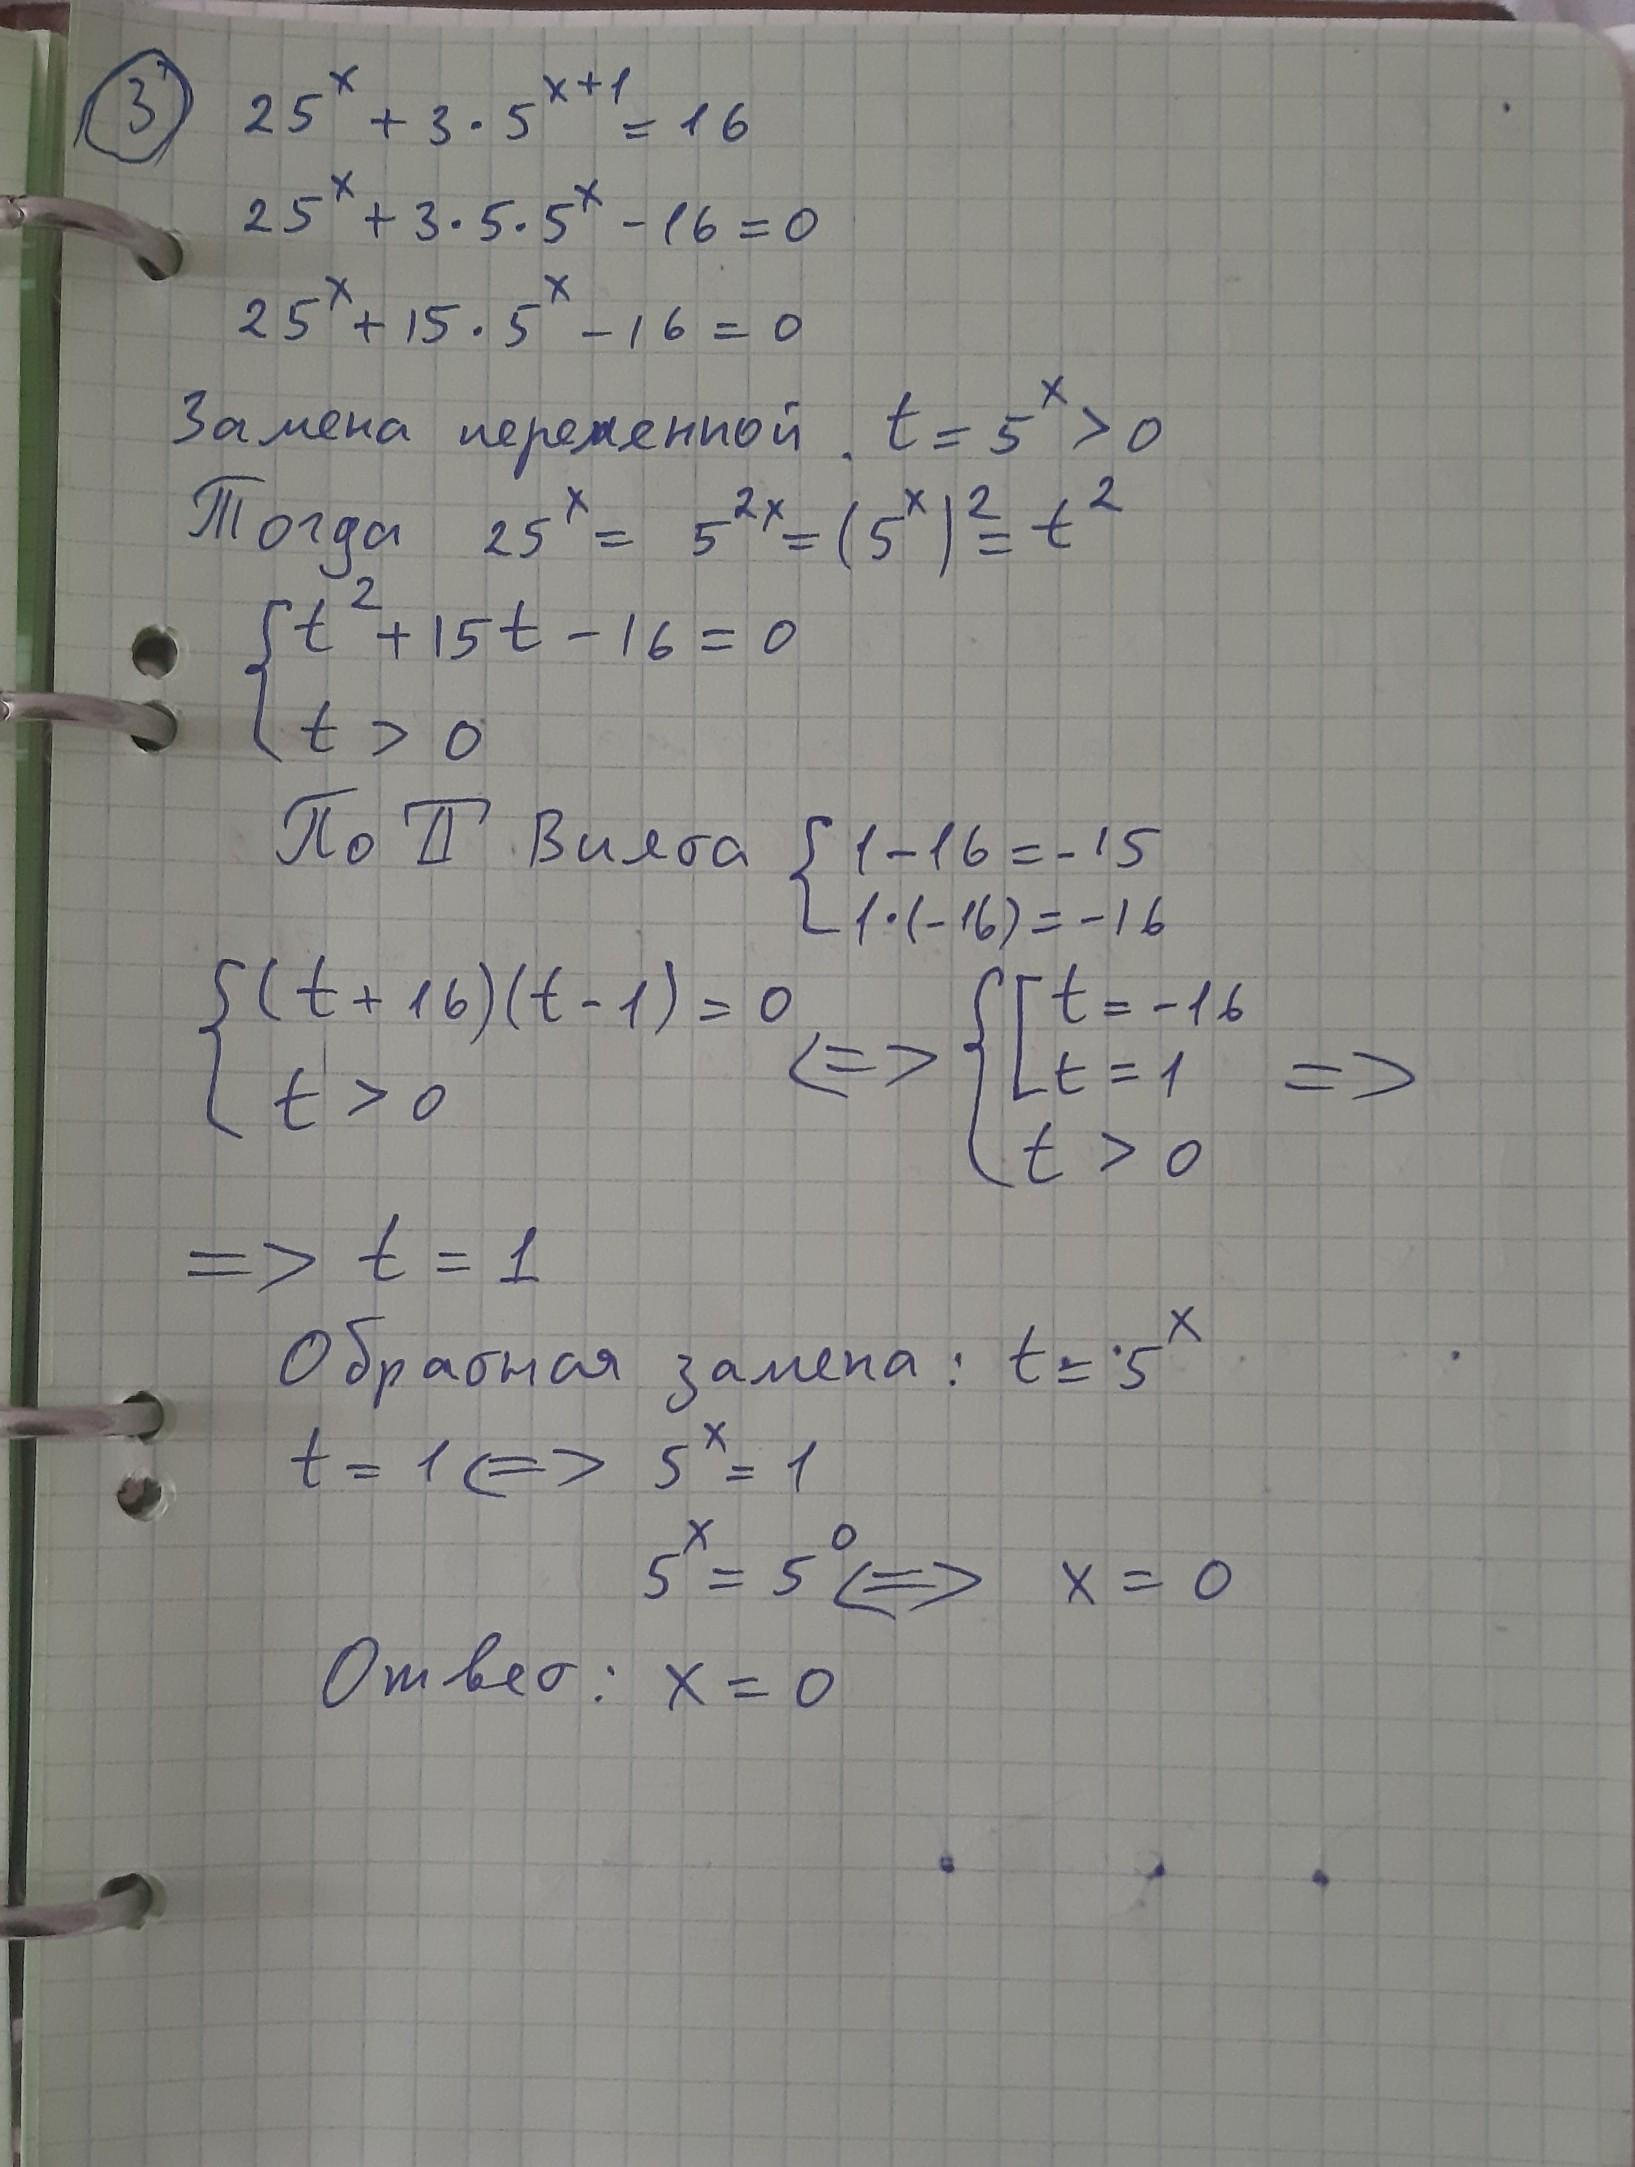 3 25^x + 3·5^(x+1) = 16
25^x + 3·5·5^x - 16 = 0
25^x + 15·5^x - 16 = 0
Замена переменной. t = 5^x > 0
Тогда 25^x = 5^(2x) = (5^x)^2 = t^2
{ t^2 + 15t - 16 = 0
t > 0
По Виета { 1 - 16 = -15
1·(-16) = -16
{ (t + 16)(t - 1) = 0 <=> { [ t = -16
t > 0 t = 1 =>
t > 0
=> t = 1
Обратная замена: t = 5^x
t = 1 <=> 5^x = 1
5^x = 5^0 <=> x = 0
Ответ: x = 0